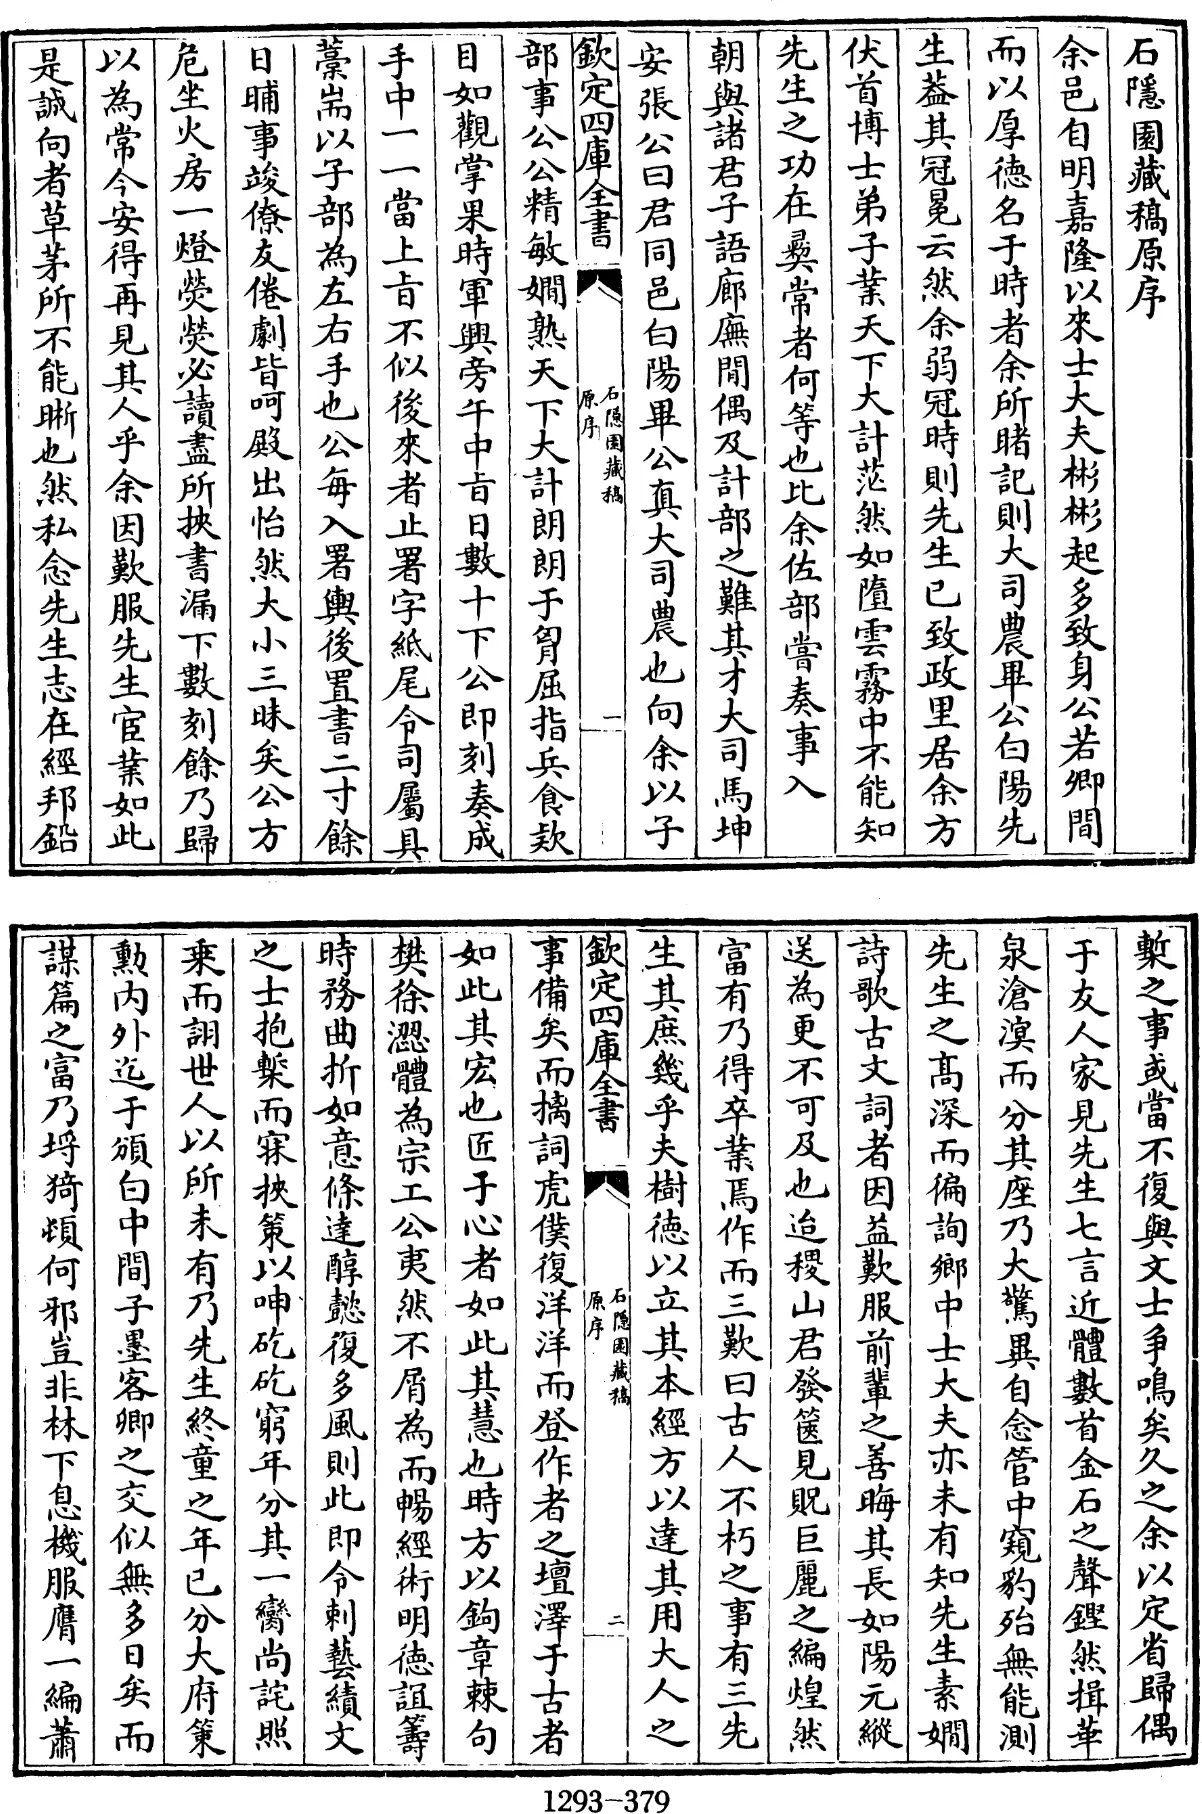 石隱園藏稿原序
余邑自明嘉隆以來士大夫彬彬起多致身公若卿間
而以厚德名于時者余所睹記則大司農畢公白陽先
生葢其冠冕云然余弱冠時則先生已致政里居余方
伏首博士弟子業天下大計茫然如墮雲霧中不能知
先生之功在彛常者何等也比余佐部嘗奏事入
朝與諸君子語廊廡閒偶及計部之難其才大司馬坤
安張公曰君同邑白陽畢公真大司農也向余以子
欽定四庫全書
石隱園藏稿
原序
一
部事公公精敏嫺熟天下大計朗朗于胷屈指兵食欵
目如觀掌果時軍興旁午中旨日數十下公即刻奏成
手中一一當上旨不似後來者止署字紙尾令司屬具
藁耑以子部為左右手也公每入署輿後置書二寸餘
日晡事竣僚友倦劇皆呵殿出怡然大小三昧矣公方
危坐火房一燈熒熒必讀盡所挾書漏下數刻餘乃歸
以為常今安得再見其人乎余因歎服先生宦業如此
是誠向者草茅所不能晰也然私念先生志在經邦鉛
槧之事或當不復與文士爭鳴矣久之余以定省歸偶
于友人家見先生七言近體數首金石之聲鏗然揖華
泉滄溟而分其座乃大驚異自念管中窺豹殆無能測
先生之髙深而徧詢鄉中士大夫亦未有知先生素嫺
詩歌古文詞者因益歎服前輩之善晦其長如陽元縱
送為更不可及也迨稷山君發篋見貺巨麗之編煌然
富有乃得卒業焉作而三歎曰古人不朽之事有三先
生其庶幾乎夫樹德以立其本經方以達其用大人之
欽定四庫全書
石隱園藏稿
原序
二
事備矣而摛詞虎僕復洋洋而登作者之壇澤于古者
如此其宏也匠于心者如此其慧也時方以鉤章棘句
樊徐澀體為宗工公夷然不屑為而暢經術明德誼籌
時務曲折如意條達醇懿復多風則此即令刺藝績文
之士抱槧而寐挾策以呻矻矻窮年分其一臠尚詫照
乗而詡世人以所未有乃先生終童之年已分大府策
勲内外迄于頒白中間子墨客卿之交似無多日矣而
謀篇之富乃埒猗頓何邪豈非林下息機服膺一編蕭
1293-379